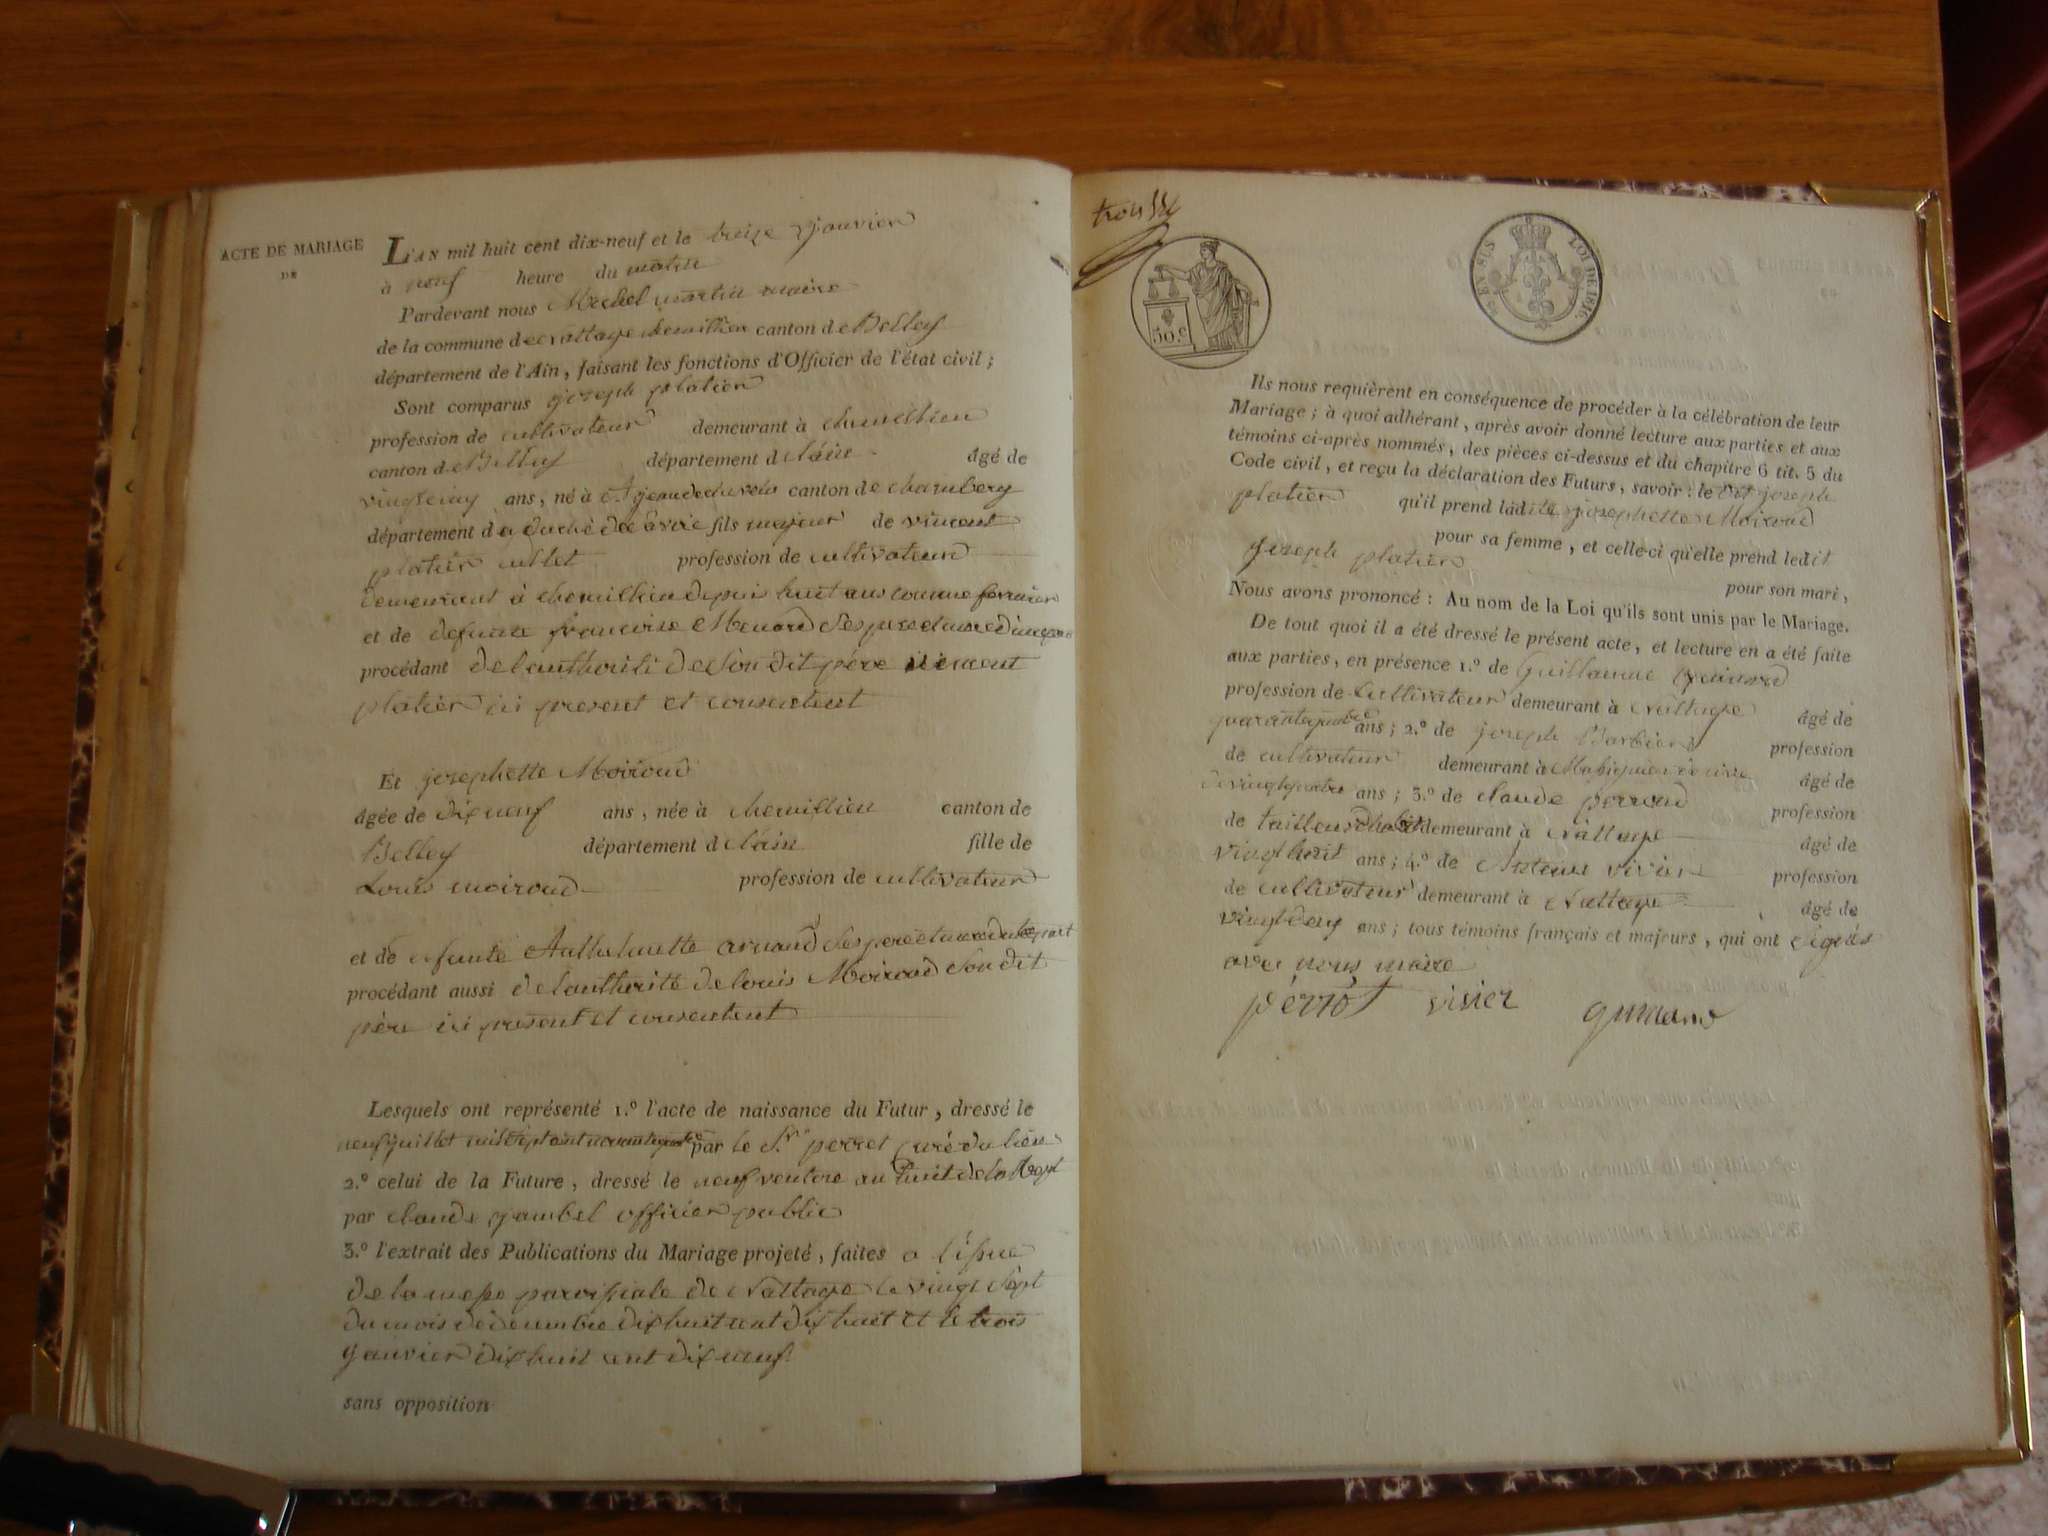 ACTE DE MARIAGE
DE
L'AN mil huit cent dix-neuf et le treize janvier
à neuf heure du matin
Pardevant nous Michel martin maire
de la commune de nattage chemillieu canton de Belley
département de l'Ain, faisant les fonctions d'Officier de l'état civil;
Sont comparus joseph platier
profession de cultivateur demeurant à chemillieu
canton de Belley département de lain âgé de
vingtcinq ans, né à canton de chambery
département fils majeur de vincent
platier profession de cultivateur
demeurant à chemillieu depuis huit ans comme fermier
et de defunte francoise
procédant de lauthorité de son dit père vincent
platier ici present et consentent
Et josephette Moiroud
âgée de dix neuf ans, née à chemillieu canton de
Belley département de lain fille de
Louis moiroud profession de cultivateur
et de defunte arnaud
procédant aussi de lauthorité de louis Moiroud son dit
père ici present et consentent
Lesquels ont représenté 1.° l'acte de naissance du Futur, dressé le
neuf juillet par le Sr perret curé du lieu
2.° celui de la Future, dressé le neuf ventose an huit de la Rep
par claude gambel officier public
3.° l'extrait des Publications du Mariage projeté, faites a l'issue
de la messe paroissiale de Nattage le vingt sept
du mois de decembre dix huit cent dix huit et le trois
janvier dix huit cent dix neuf
sans opposition
50.c
LOI DE 1816
Ils nous requièrent en conséquence de procéder à la célébration de leur
Mariage; à quoi adhérant, après avoir donné lecture aux parties et aux
témoins ci-après nommés, des pièces ci-dessus et du chapitre 6 tit. 5 du
Code civil, et reçu la déclaration des Futurs, savoir: le dit joseph
platier qu'il prend ladite josephette Moiroud
pour sa femme, et celle-ci qu'elle prend ledit
joseph platier
pour son mari,
Nous avons prononcé: Au nom de la Loi qu'ils sont unis par le Mariage.
De tout quoi il a été dressé le présent acte, et lecture en a été faite
aux parties, en présence 1.° de guillaume
profession de cultivateur demeurant à Nattage âgé de
quarantequatre ans; 2.° de joseph Barbier profession
de cultivateur demeurant à âgé de
vingtquatre ans; 3.° de claude perroud profession
de tailleur dhabit demeurant à Nattage âgé de
vingthuit ans; 4.° de Anteine vivier profession
de cultivateur demeurant à Nattage âgé de
vingtdeux ans; tous témoins français et majeurs, qui ont signés
avec nous maire
vivier